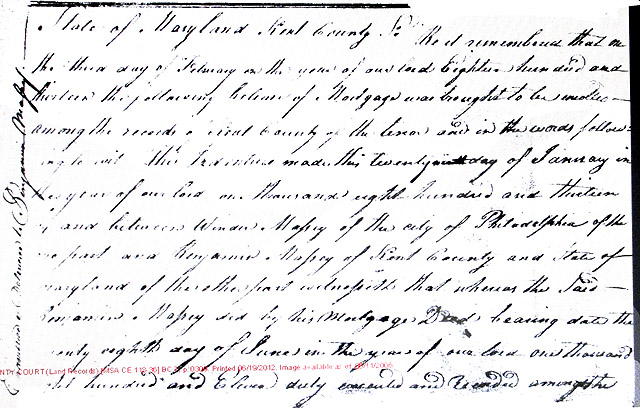 State of Maryland Kent County Sc Be it remembered that on
the third day of February in the year of our lord Eighteen hundred and
thirteen the following Release of Mortgage was brought to be
among the records of Kent County of the tenor and in the words follow-
ing to wit This Indenture made this twenty day of January in
the year of our lord one thousand eight hundred and thirteen
by and between Winder Massey of the city of Philadelphia of the
one part and Benjamin Massey of Kent County and State of
maryland of the other part witnesseth that whereas the Said
Benjamin Massey did by his Mortgage Deed bearing date the
twenty eighth day of June in the year of our lord one thousand
NTY COURT (Land Records) [MSA CE 118-36] BC p. Printed 06/19/2012. Image available as of
eight hundred and Eleven duly executed and Recorded amongst the
Benjamin Massey